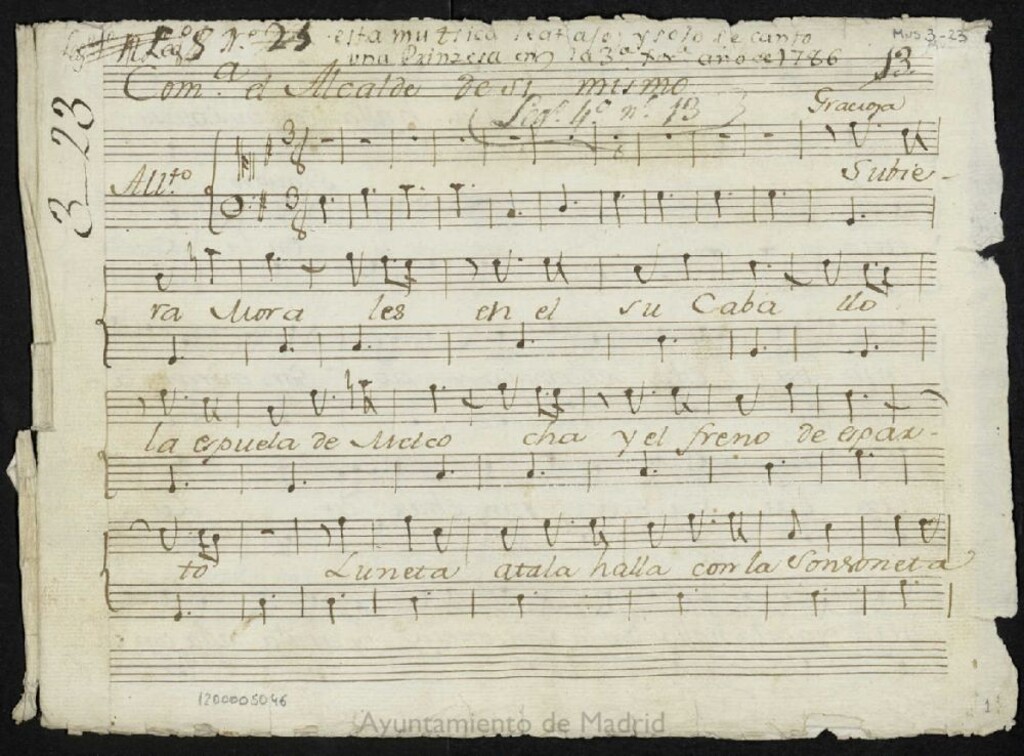 Leg.º 8 N.º 25 esta mussica se atajo; y solo se canto
una Prinzesa en la 3.ª año de 1786
Mus 3-23
13
Com.ª el Alcalde de si mismo
Leg.º 4.º n.º 13
Graciosa
3_23
All.to
Subie-
ra Mora les en el su Caba llo
la espuela de Melco cha y el freno de espar-
to Luneta atala halla con la Sonsoneta
1200005046
Ayuntamiento de Madrid
1